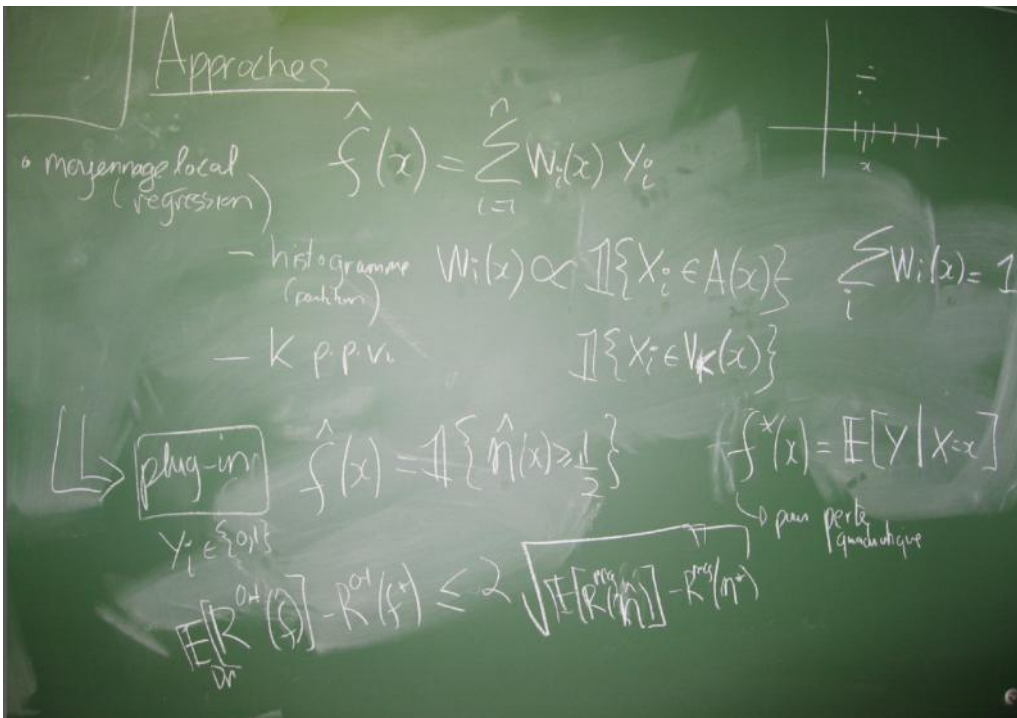 Approches
• moyennage local
(régression)
f̂(x) = ∑_{i=1}^{n} W_i(x) Y_i
x
— histogramme W_i(x) ∝ 𝟙{X_i ∈ A(x)} ∑_i W_i(x) = 1
(partition)
— K p.p.v. 𝟙{X_i ∈ V_K(x)}
↳ plug-in f̂(x) = 𝟙{η̂(x) ≥ 1/2} f*(x) = 𝔼[Y | X=x]
Y_i ∈ {0,1} ↳ pour perte
quadratique
𝔼[R^{0-1}(f̂)] - R^{0-1}(f*) ≤ 2 √(𝔼[R^{reg}(η̂)] - R^{reg}(η*))